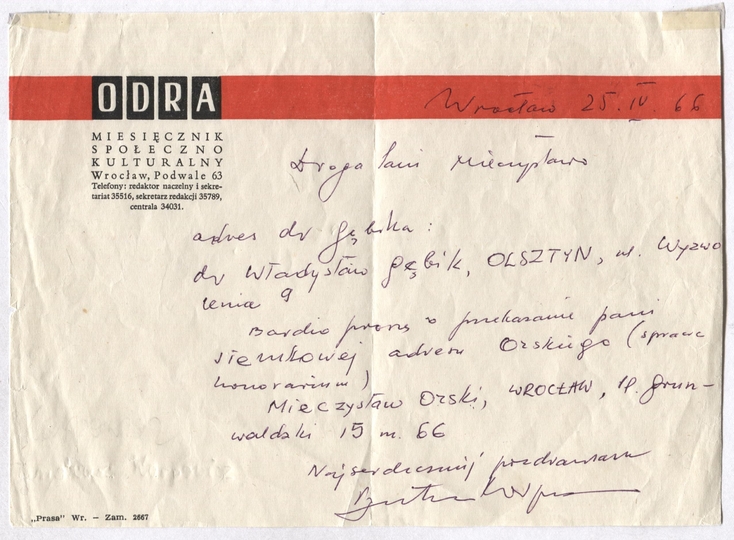 ODRA
Wrocław 25.IV.66
MIESIĘCZNIK
SPOŁECZNO
KULTURALNY
Wrocław, Podwale 63
Telefony: redaktor naczelny i sekre-
tariat 35516, sekretarz redakcji 35789,
centrala 34031.
Droga Pani Mieczysławo
adres dr Gębika:
dr Władysław Gębik, OLSZTYN, ul. Wyzwo
lenia 9
Bardzo proszę o przekazanie pani
Siemkowej adresu Orskiego (sprawa
honorarium)
Mieczysław Orski, WROCŁAW, Pl. Grun-
waldzki 15 m. 66
Najserdeczniej pozdrawiam
„Prasa” Wr. – Zam. 2667